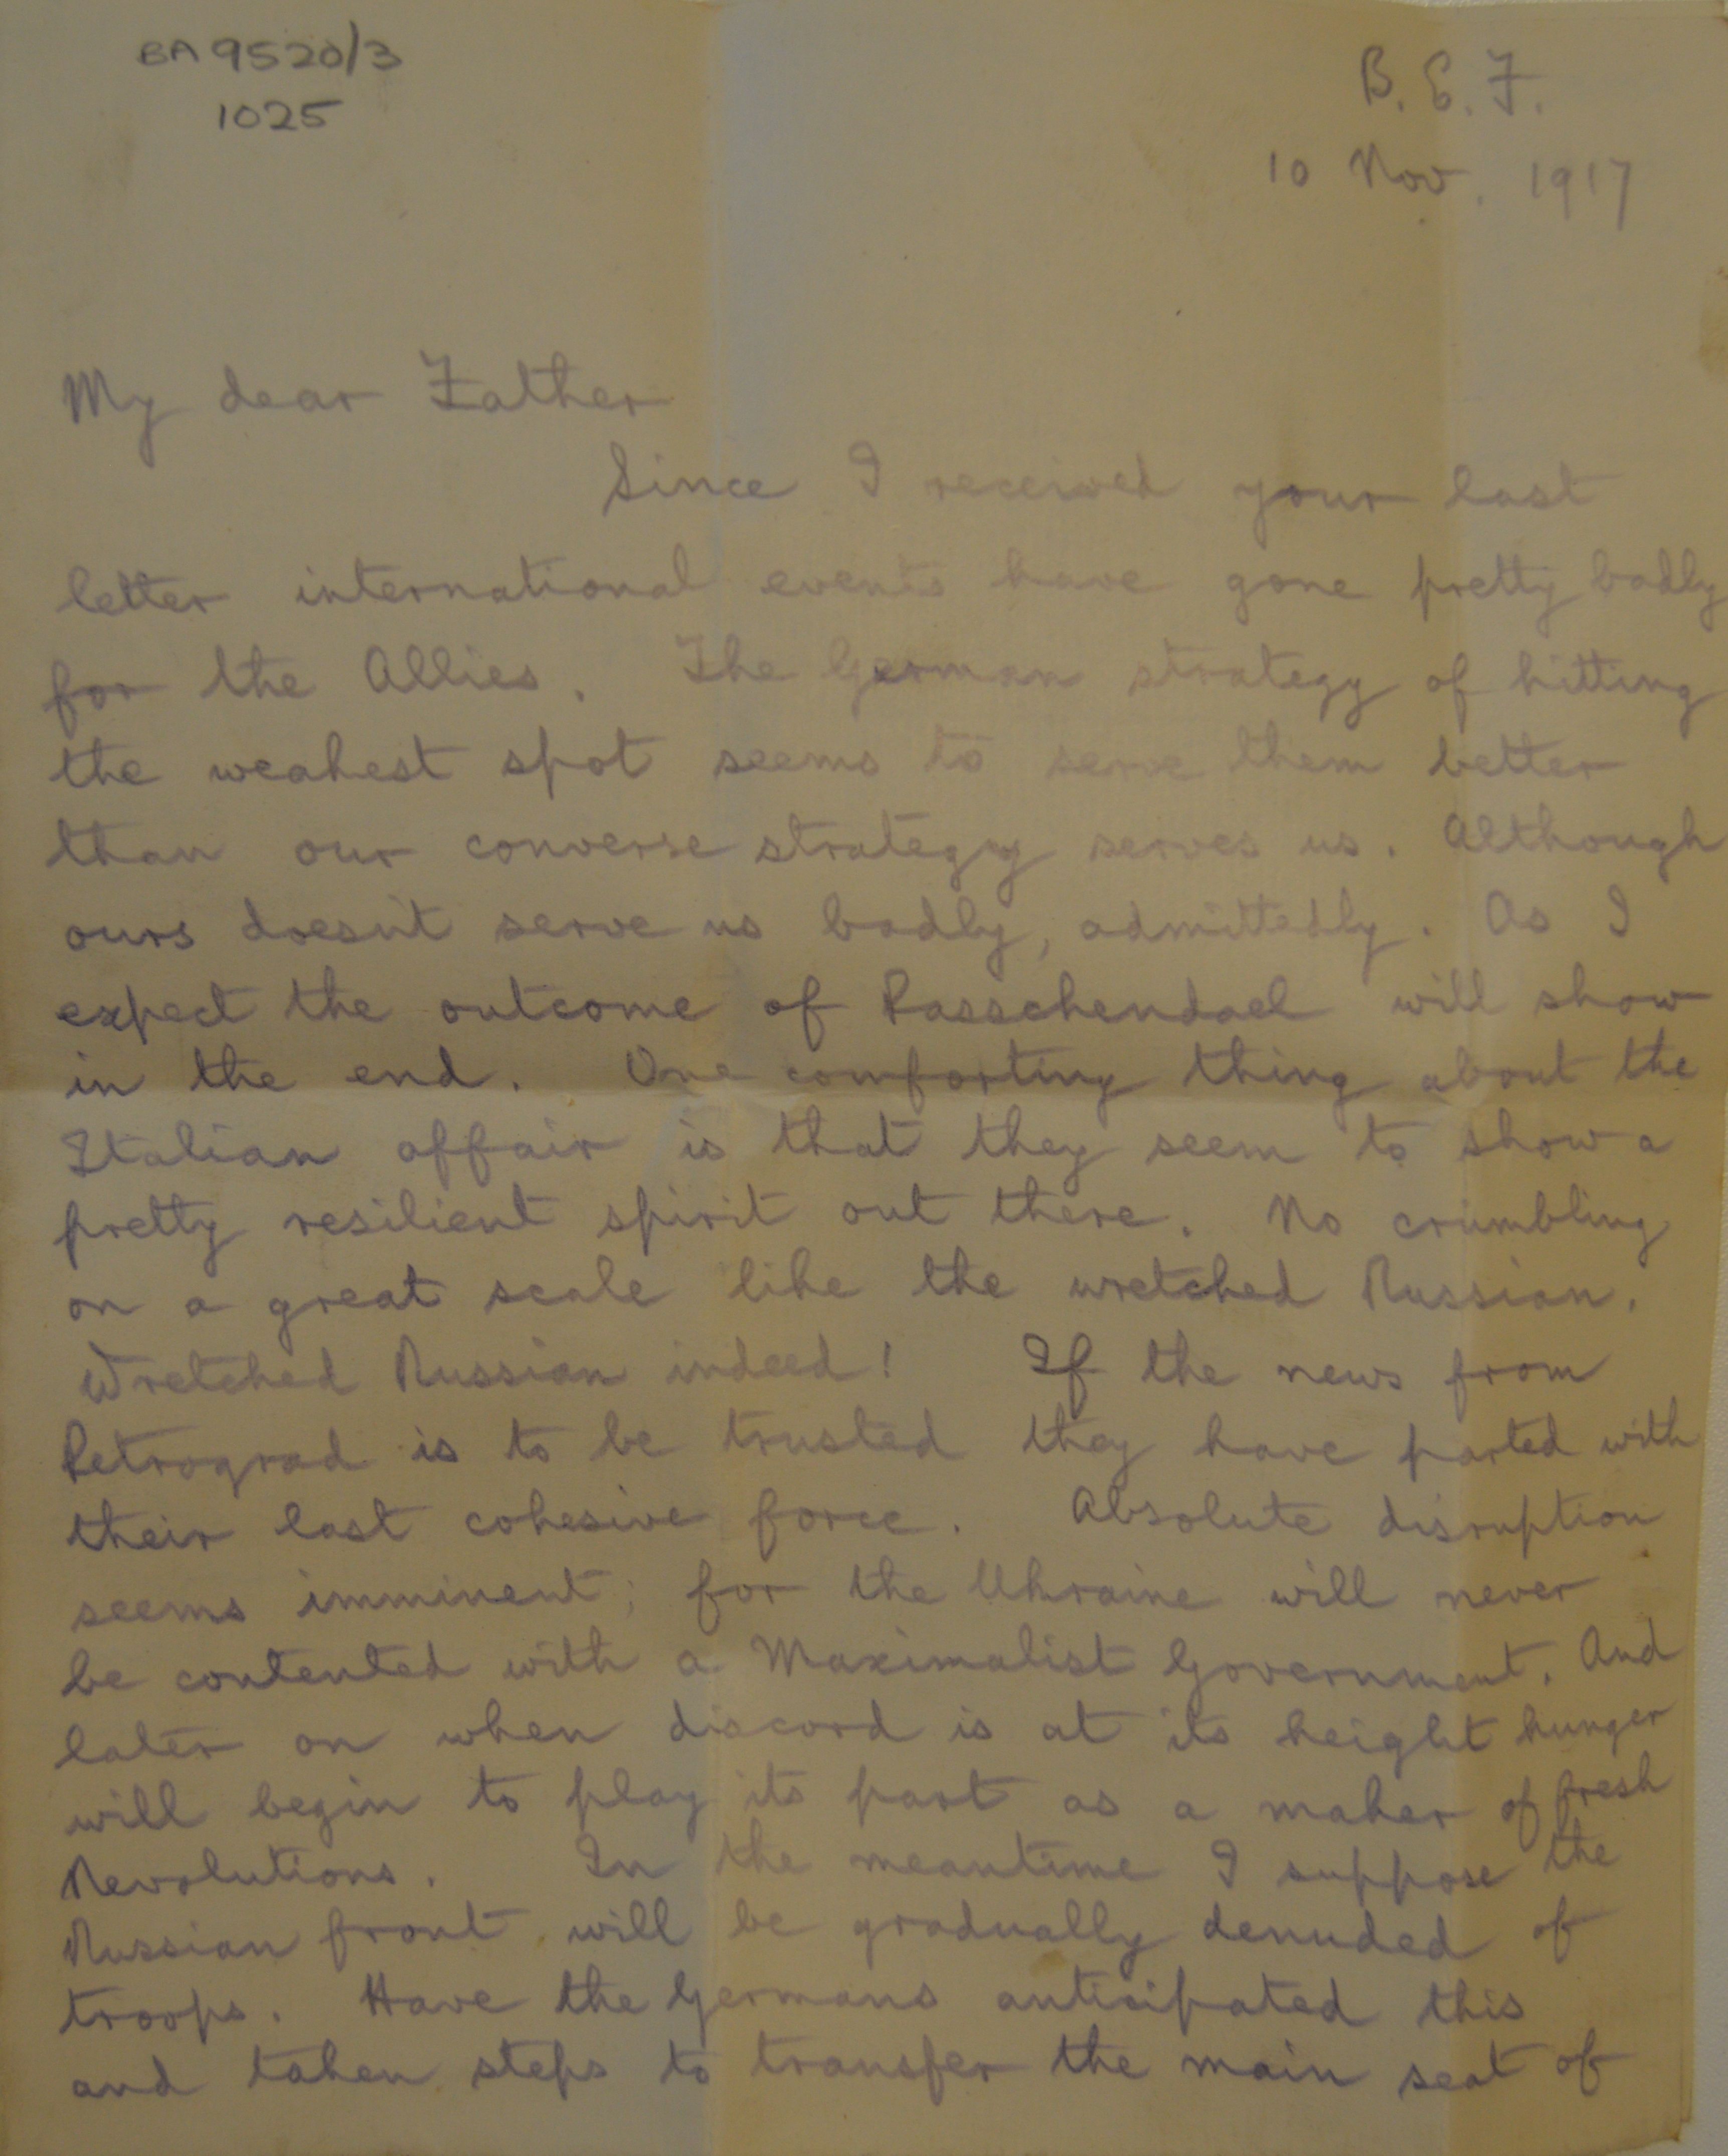 BA 9520/3
1025
B. E. F.
10 Nov. 1917
My dear Father
Since I received your last
letter international events have gone pretty badly
for the Allies. The German strategy of hitting
the weakest spot seems to serve them better
than our converse strategy serves us. Although
ours doesn't serve us badly, admittedly. As I
expect the outcome of Passchendael will show
in the end. One comforting thing about the
Italian affair is that they seem to show a
pretty resilient spirit out there. No crumbling
on a great scale like the wretched Russian.
Wretched Russian indeed! If the news from
Petrograd is to be trusted they have parted with
their last cohesive force. Absolute disruption
seems imminent; for the Ukraine will never
be contented with a Maximalist Government. And
later on when discord is at its height hunger
will begin to play its part as a maker of fresh
Revolutions. In the meantime I suppose the
Russian front will be gradually denuded of
troops. Have the Germans anticipated this
and taken steps to transfer the main seat of